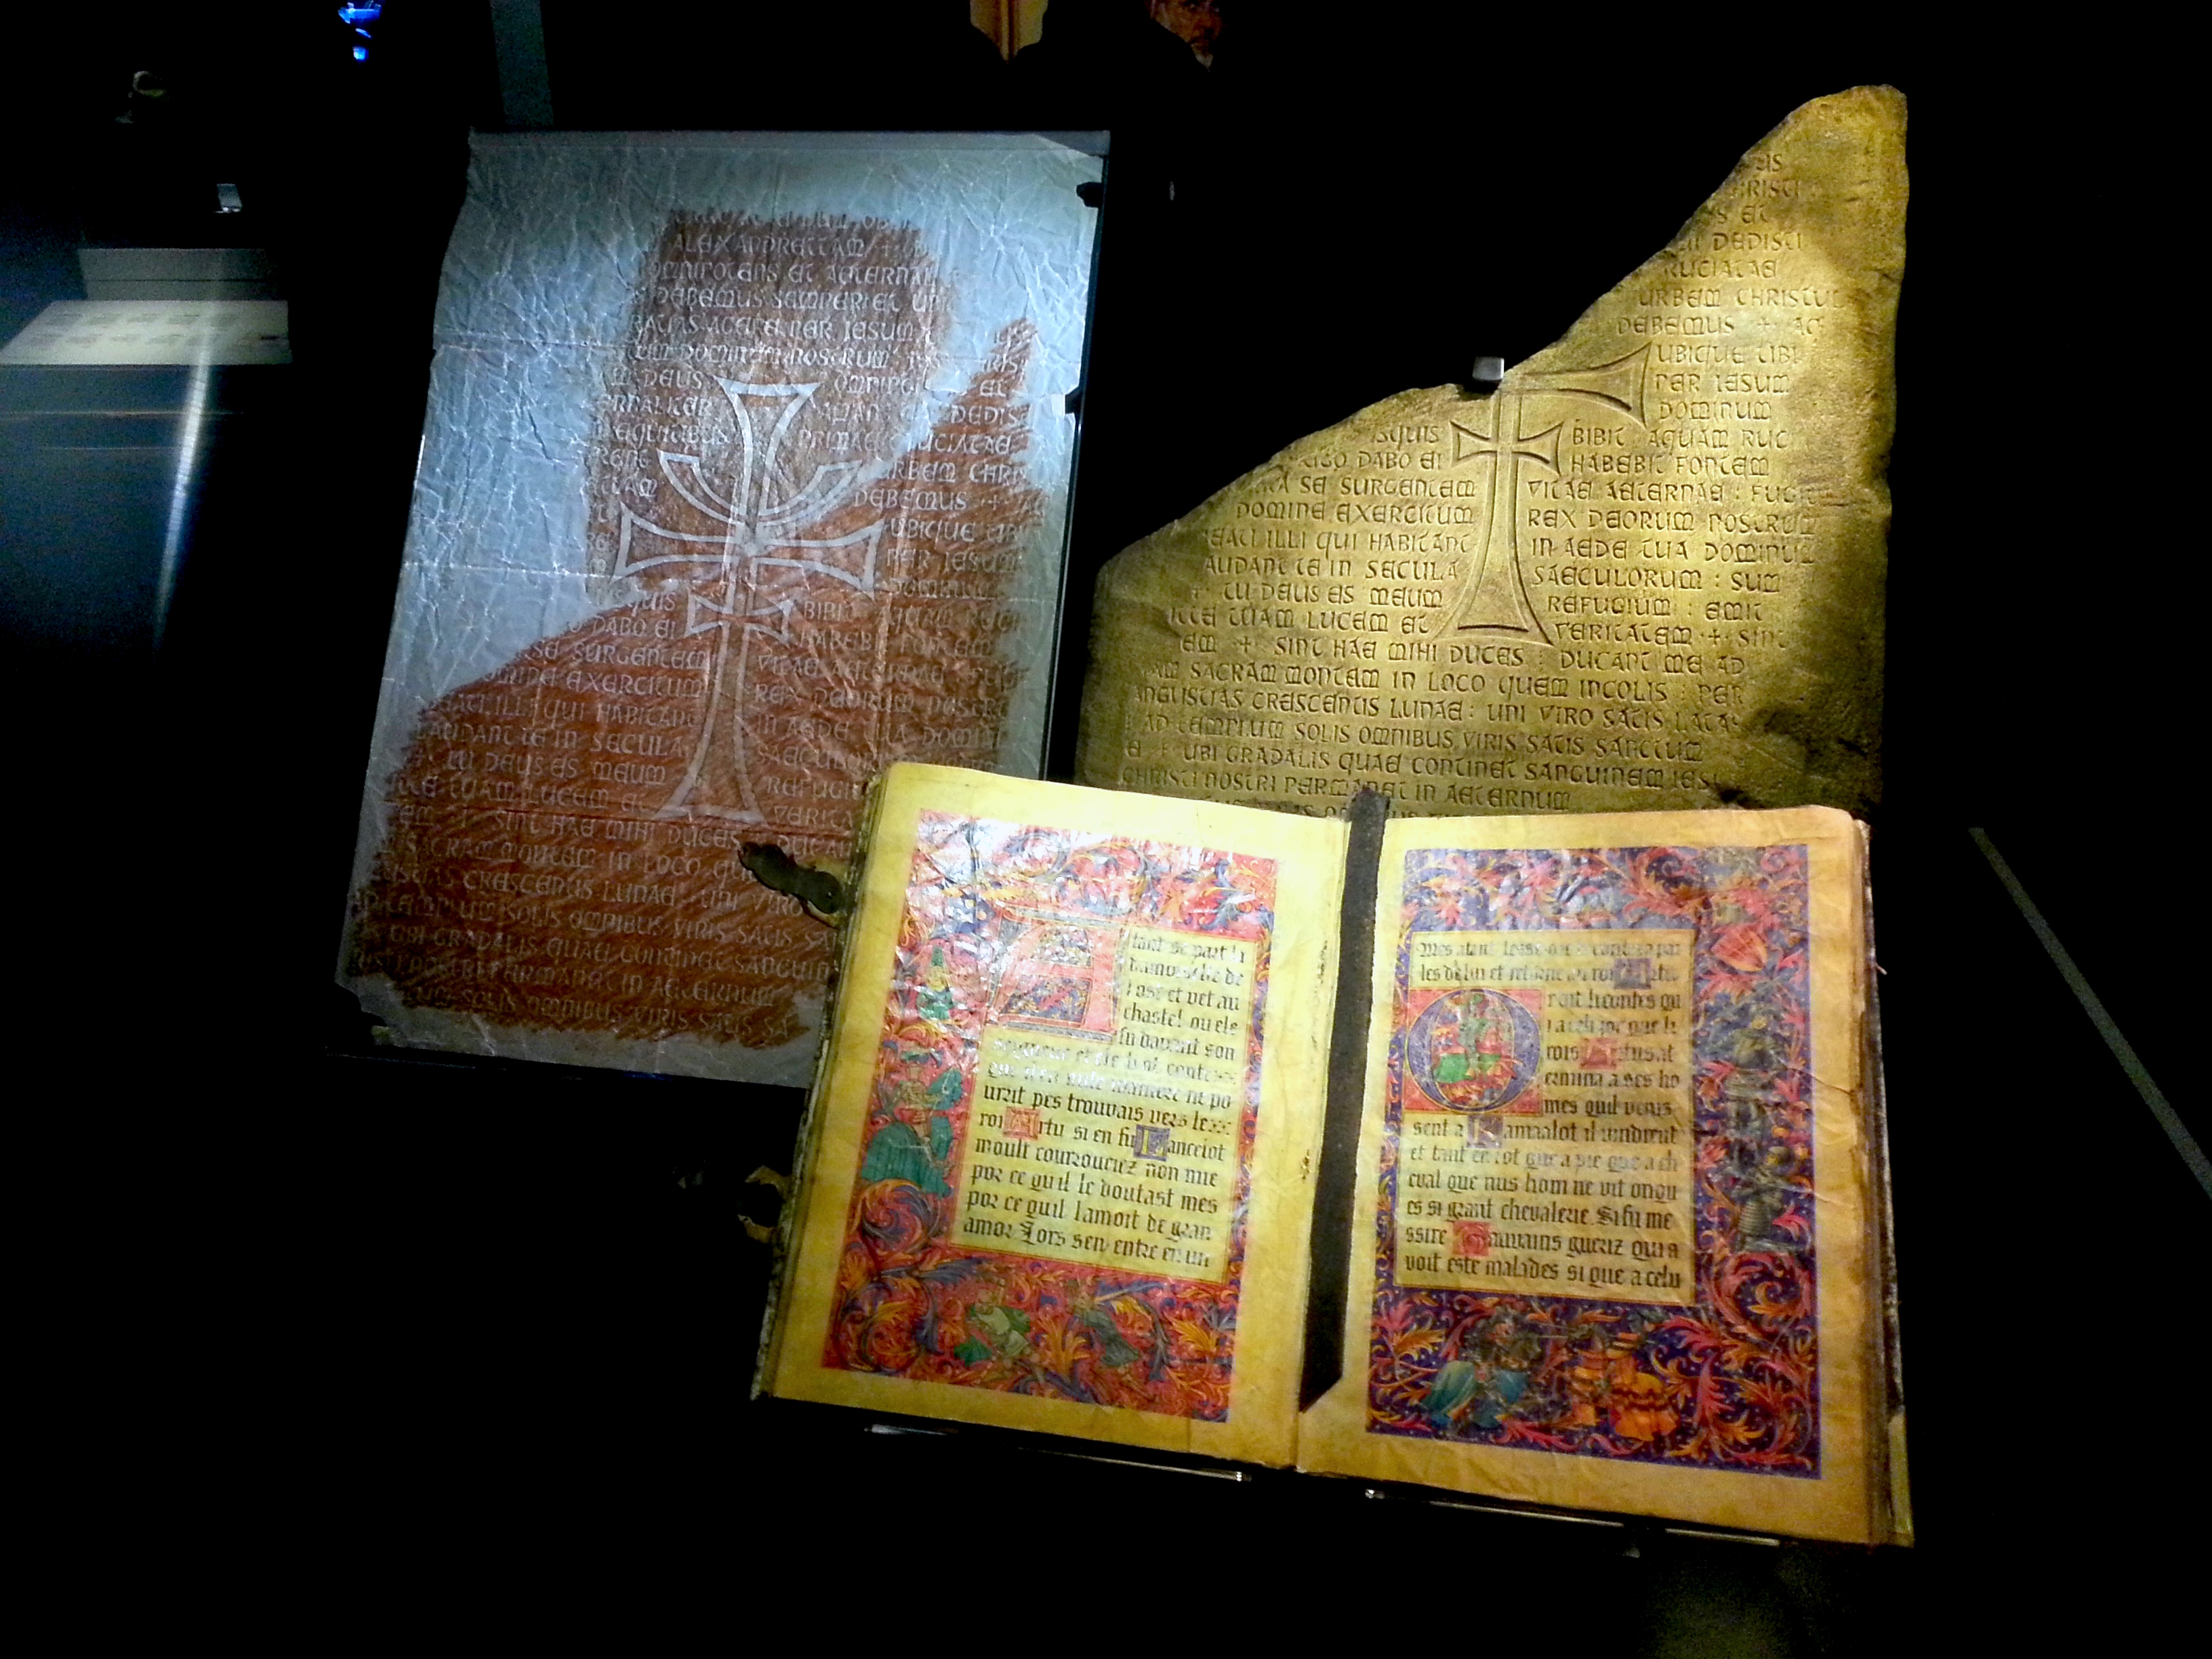 ALEXANDRETTAM
OMNIPOTENS ET AETERNAL
DEBEMUS SEMPER ET UB
GRATIAS AGERE PER IESUM
TUM DOMINUM NOSTRUM
DEUS OMNIPOT
ERNALITER
DEDIS
EQUITIBUS PRIMAE CRUCIATAE
URBEM CHRIS
ETTAM DEBEMUS + AG
UBIQUE TIBI
PER IESUM
DOMINUM
SQUIS BIBIT AQUAM
DABO EI HABEBIT FONTEM
SE SURGENTEM VITAE AETERNAE
DOMINE EXERCITUM REX DEORUM NOSTRU
EATI ILLI QUI HABITANT IN AEDE TUA DOMIN
AUDANT TE IN SECULA SAECULORUM
TU DEUS ES MEUM REFUGIU
ITTE TUAM LUCEM ET VERITA
EM + SINT HAE MIHI DUCES
SACRAM MONTEM IN LOCO QU
STIAS CRESCENTIS LUNAE : UNI VIRO
AD TEMPLUM SOLIS OMNIBUS VIRIS SATIS SAN
UBI GRADALIS QUAE CONTINET SANGUIN
ISTI NOSTRI PERMANET IN AETERNUM
SOLIS OMNIBUS VIRIS SATIS SA
US
HRISTI
S ET
DEDISTI
RUCIATAE
URBEM CHRISTU
DEBEMUS + AG
UBIQUE TIBI
PER IESUM
DOMINUM
SQUIS BIBIT AQUAM RUC
DABO EI HABEBIT FONTEM
SE SURGENTEM VITAE AETERNAE : FUG
DOMINE EXERCITUM REX DEORUM NOSTRUM
EATI ILLI QUI HABITANT IN AEDE TUA DOMINUM
AUDANT TE IN SECULA SAECULORUM : SUM
+ TU DEUS ES MEUM REFUGIUM : EMIT
ITTE TUAM LUCEM ET VERITATEM + SINT
EM + SINT HAE MIHI DUCES : DUCANT ME AD
AM SACRAM MONTEM IN LOCO QUEM INCOLIS : PER
ANGUSTIAS CRESCENTIS LUNAE : UNI VIRO SATIS LATAS
AD TEMPLUM SOLIS OMNIBUS VIRIS SATIS SANCTUM
E + UBI GRADALIS QUAE CONTINET SANGUINEM IESU
CHRISTI NOSTRI PERMANET IN AETERNUM
Atant se part li
damoiselle de
lost et vet au
chastel ou ele
fu davent son
seigneur et ele li ot conte
que il en nule maniere ne po
urrit pes trouvais vers le
roi Artu si en fu Lancelot
moult courrouciez non mie
por ce quil le doutast mes
por ce quil lamoit de gran
amor Lors sen entre en un
Mes atant lesse ore a conter par
les delui et retorne au roi Artu
roit li contes qu
i a cel jor que li
rois Artus at
ermina a ses ho
mes quil venis
sent a Kamaalot il vindrent
et tant en i ot que a pie que a ch
eval que nus hom ne vit onqu
es si grant chevalerie. Si fu me
ssire Gauvains gueriz qui a
voit este malades si que a celu